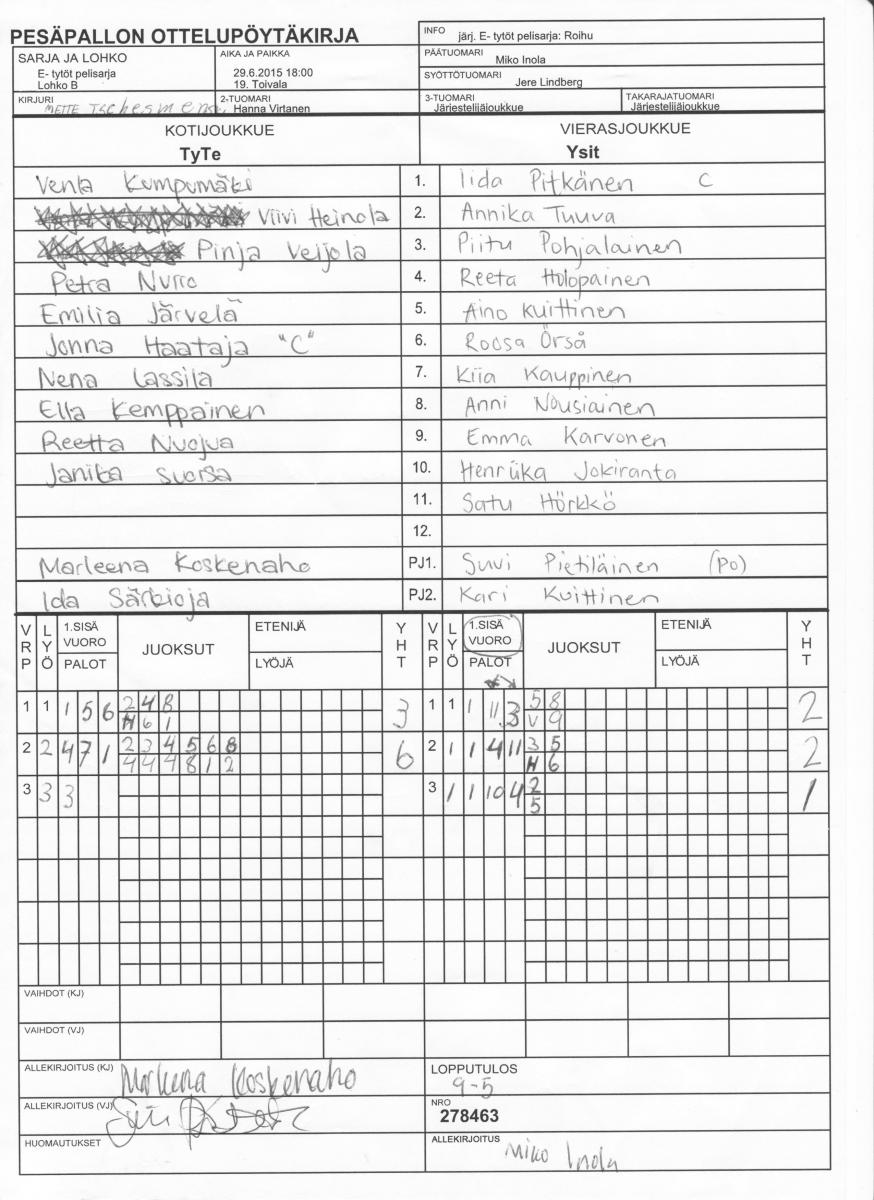 PESÄPALLON OTTELUPÖYTÄKIRJA
INFO järj. E- tytöt pelisarja: Roihu
SARJA JA LOHKO
E- tytöt pelisarja
Lohko B
AIKA JA PAIKKA
29.6.2015 18:00
19. Toivala
PÄÄTUOMARI
Miko Inola
SYÖTTÖTUOMARI
Jere Lindberg
KIRJURI METTE
2-TUOMARI
Hanna Virtanen
3-TUOMARI
Järjestelijäjoukkue
TAKARAJATUOMARI
Järjestelijäjoukkue
KOTIJOUKKUE VIERASJOUKKUE
TyTe Ysit
Venla Kumpumäki 1. Iida Pitkänen C
Viivi Heinola 2. Annika Tuuva
Pinja Veijola 3. Piitu Pohjalainen
Petra Nurro 4. Reeta Holopainen
Emilia Järvelä 5. Aino Kuittinen
Jonna Haataja "C" 6. Roosa Örså
Nena Lassila 7. Kiia Kauppinen
Ella Kemppainen 8. Anni Nousiainen
Reetta Nuojua 9. Emma Karvonen
Janika Suorsa 10. Henriika Jokiranta
11. Satu Hörkkö
12.
Marleena Koskenaho PJ1. Suvi Pietiläinen (PO)
Ida Särkioja PJ2. Kari Kuittinen
VRP LYÖ 1.SISÄ VUORO PALOT JUOKSUT ETENIJÄ LYÖJÄ YHT VRP LYÖ 1.SISÄ VUORO PALOT JUOKSUT ETENIJÄ LYÖJÄ YHT
1 1 1 5 6 2 4 8 3 1 1 1 11 3 5 8 2
H 6 1 V 9
2 2 4 7 1 2 3 4 5 6 8 6 2 1 1 4 11 3 5 2
4 4 4 8 1 2 H 6
3 3 3 3 1 1 10 4 2 1
5
VAIHDOT (KJ)
VAIHDOT (VJ)
ALLEKIRJOITUS (KJ) Marleena Koskenaho
LOPPUTULOS
9-5
ALLEKIRJOITUS (VJ)
NRO
278463
HUOMAUTUKSET
ALLEKIRJOITUS Miko Inola